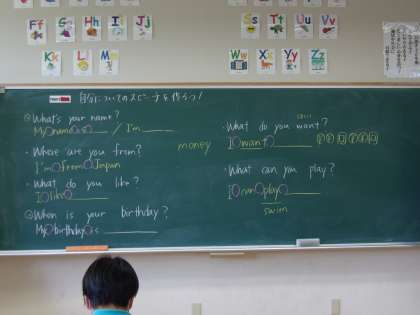 Ff Gg Hh Ii Jj
Ss Tt Uu Vv
Kk Ll Mm
Ww Xx Yy Zz
自分についてのスピーチを作ろう!
What's your name?
My name is / I'm
Where are you from?
I'm from Japan
What do you like?
I like
When is your birthday?
My birthday is
money
What do you want?
I want
What can you play?
I can play
swim